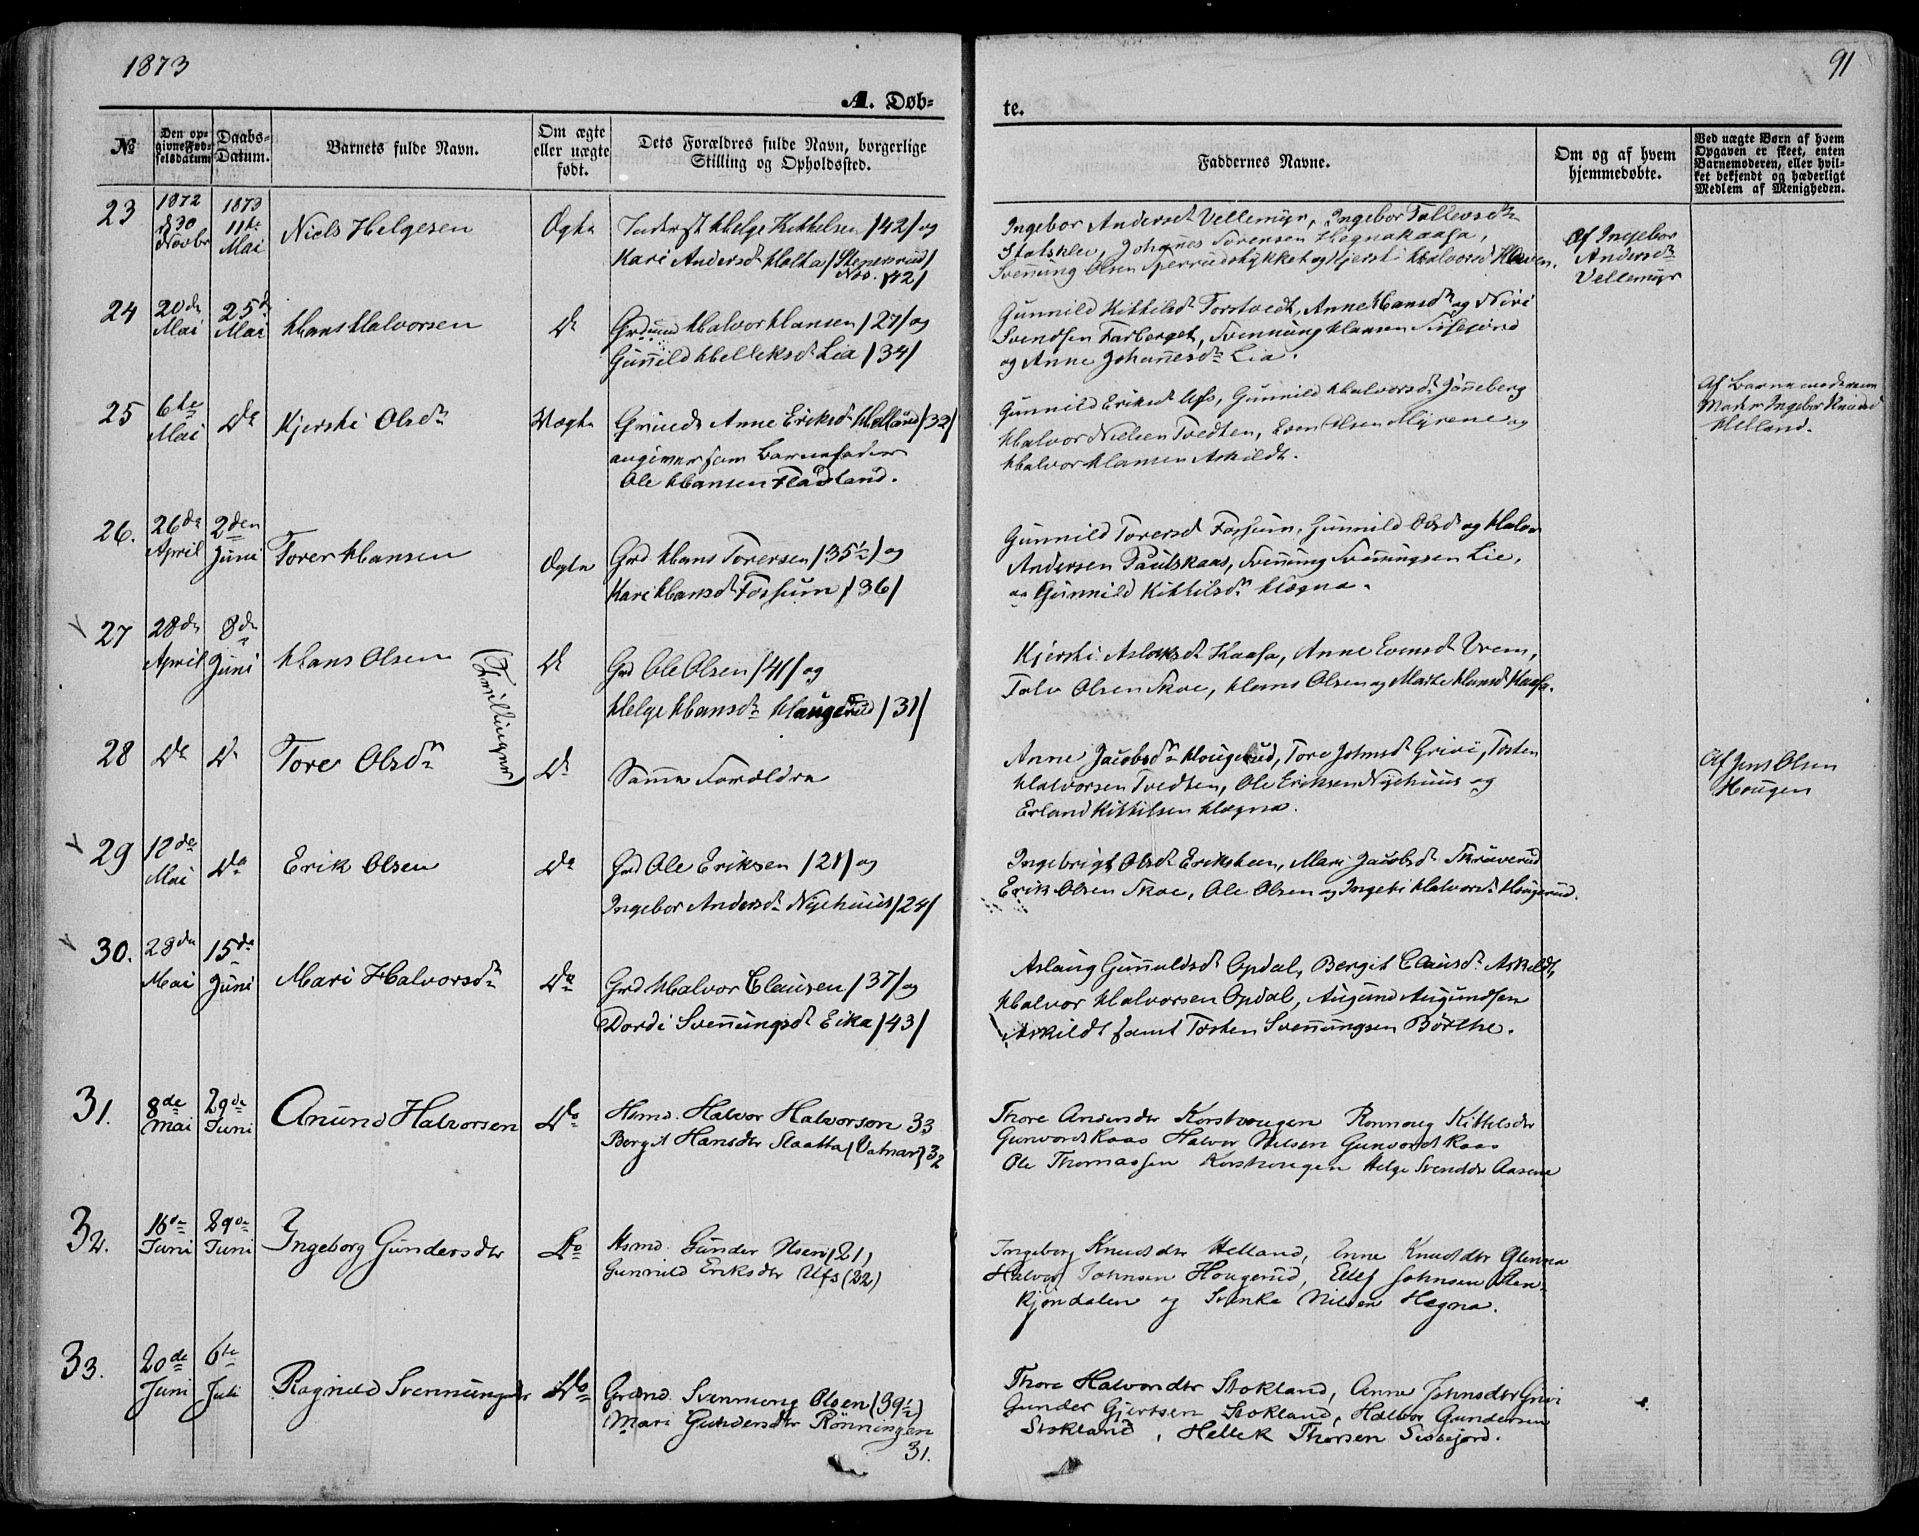 1873
91
A. Døb-
te.
№
Den op-
givne Fød-
selsdatum
Daabs-
Datum.
Barnets fulde Navn.
Om ægte
eller uægte
født.
Dets Forældres fulde Navn, borgerlige
Stilling og Opholdssted.
Faddernes Navne.
Om og af hvem
hjemmedøbte.
Ved uægte Børn af hvem
Opgaven er skeet, enten
Barnemoderen, eller hvil-
ket bekjendt og hæderligt
Medlem af Menigheden.
23
1872
30
Novbr
1873
11te
Mai
Niels Helgesen
Ægte
Helge Kittelsen /42/ og
Kari Andersd Holtka /Stenersrud/
Nos. /42/
Ingebor Andersd Vellemyr, Ingebor Tollevsd
Statsklev, Johannes Sørensen Hegnakaasa,
Svennung Olsen og Kjersti Halvorsd Haven.
Af Ingebor
Andersd
Vellemyr
24
20de
Mai
25de
Mai
Hans Halvorsen
Do
Grdmd Halvor Hansen /27/ og
Gunnild Helleksd Lia /34/
Gunnild Kittilsd Forstvedt, Anne Hansdr og Niri
Svendsen Farberget, Svennung Hansen
og Anne Johannesdr Lia.
25
6te
Mai
Do
Kjersti Olsdr
Uægte
Anne Eriksd Helland /32/
angiver som Barnefader
Ole Hansen Fladland.
Gunnild Eriksd Ufs, Gunnild Halvorsd Jønneberg
Halvor Nielsen Tvedten, Even Olsen Myrene og
Halvor Hansen Askildt.
Af Barnemoderens
Moder Ingebor Knudsd
Helland.
26.
26de
April
2den
Juni
Torer Hansen
Ægte
Grd Hans Torersen /35½/ og
Kari Hansd Forsum /36/
Gunnild Torersd Forsum, Gunnild Olsd og Halvor
Andersen Paulskaas, Svennung Svennungsen Lie,
og Gunnild Kittilsdr Hægna.
27
28de
April
8de
Juni
Hans Olsen
(Tvillinger)
Do
Grd Ole Olsen /41/ og
Helge Hansdr Haugerud /31/
Kjersti Aslaksd Kaasa, Anne Evensd Vrem,
Tolv Olsen Skoe, Hans Olsen og Marte Hansd Kaasa.
28
Do
Do
Tore Olsdr
Do
Samme Forældre
Anne Jacobsdr Hougerud, Tore Johnsd Grivi, Tosten
Halvorsen Tvedten, Ole Eriksen Nyehuus og
Erland Kittilsen Hægna.
Af Jens Olsen
Hougen
29
18de
Mai
Do
Erik Olsen
Do
Grd Ole Eriksen /21/ og
Ingebor Andersdr Nyehuus /24/
Ingebrigt Olsd Eriksteen, Mari Jacobsd Skräverud
Erik Olsen Skoe, Ole Olsen og Ingebor Halvorsd Hougerud.
30.
28de
Mai
15de
Juni
Mari Halvorsdr
Do
Grd Halvor Clausen /37/ og
Dordi Svennungsd Eika /43/
Aslaug Gunnuldsd Opdal, Bergit Clausd Askildt,
Halvor Halvorsen Opdal, Augund Augundsen
Askildt samt Tosten Svennungsen Børthe.
31.
8de
Mai
29de
Juni
Anund Halvorsen
Do
Hsmd. Halvor Halvorson 33
Bergit Hansdtr Slaatta (Vatnar) 32
Thore Andersdtr Korshougen Rønnoug Kittelsdtr
Gunvordskaas Halvor Nilsen Gunvordskaas
Ole Thomassen Korshougen Helge Svendsdtr Aasene
32.
16de
Juni
29de
Juni
Ingeborg Gundersdtr
Do
Hsmd. Gunder Olsen (21)
Gunnild Eriksdtr Ufs (22)
Ingeborg Knudsdtr Helland, Anne Knudsdtr Glenna
Halvor Johnsen Hougerud, Ellef Johnsen Sten-
kjøndalen og Svenke Nilsen Hægna.
33.
20de
Juni
6te
Juli
Ragnild Svennungsdtr
Do
Grdmd. Svennung Olsen (39½)
Mari Gundersdtr Rønningen
31.
Thore Halvorsdtr Stokland, Anne Johnsdtr Grivi
Gunder Gjertsen Stokland, Halvor Gundersen
Stokland, Hellek Thorsen Sisjord.